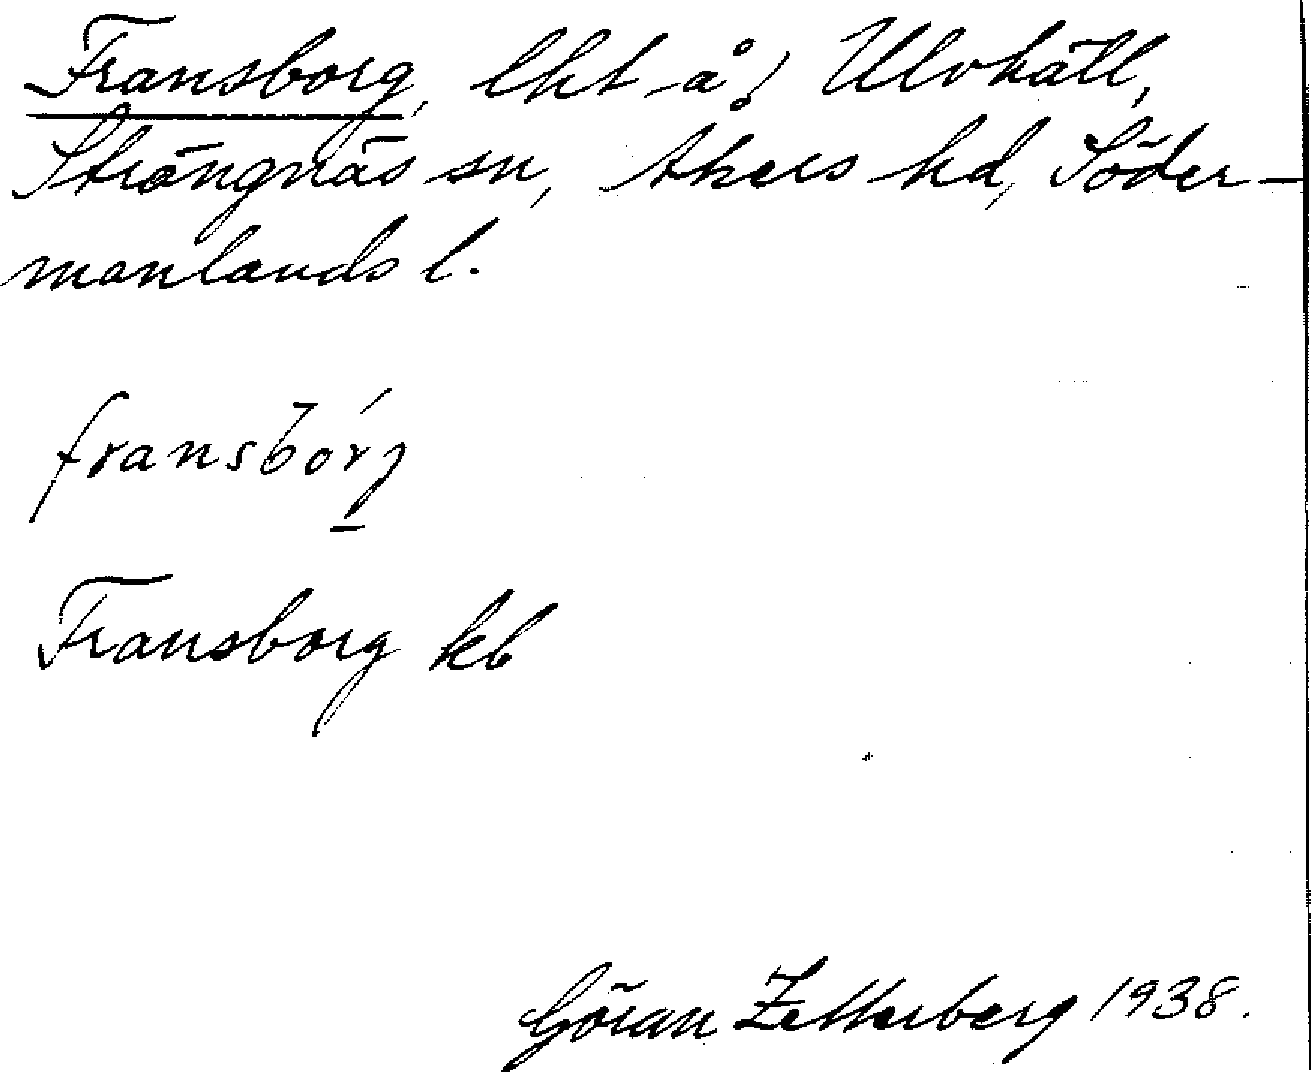 Fransborg, lht å! Ulvhäll,
Strängnäs sn, Åkers hd, Söder-
manlands l.
fransbórj
Fransborg kb
Göran Zetterberg 1938.